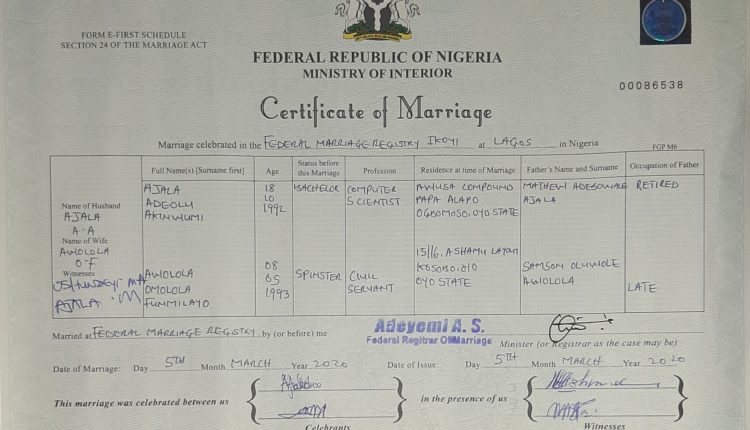 FORM E-FIRST SCHEDULE
SECTION 24 OF THE MARRIAGE ACT
FEDERAL REPUBLIC OF NIGERIA
MINISTRY OF INTERIOR
00086538
Certificate of Marriage
Marriage celebrated in the FEDERAL MARRIAGE REGISTRY IKOYI at LAGOS in Nigeria
FGP M6
Full Name(s) [Surname first] Age Status before this Marriage Profession Residence at time of Marriage Father's Name and Surname Occupation of Father
Name of Husband
AJALA
A-A
AJALA
ADEOLU
AKINWUMI
18
10
1992
BACHELOR
COMPUTER
SCIENTIST
AWUSA COMPOUND
PAPA ALAPO
OGBOMOSO, OYO STATE
MATHEW ADEBOWALE
AJALA
RETIRED
Name of Wife
AWOLOLA
O-F
Witnesses
AJALA .M
AWOLOLA
OMOLOLA
FUNMILAYO
08
05
1993
SPINSTER
CIVIL
SERVANT
15/16, ASHAMU LAYOUT
OYO STATE
SAMSON OLUWOLE
AWOLOLA
LATE
Married at FEDERAL MARRIAGE REGISTRY, by (or before) me
Adeyemi A. S.
Federal Regitrar Of Marriage
Minister (or Registrar as the case may be)
Date of Marriage: Day 5TH Month MARCH Year 2020 Date of Issue: Day 5TH Month MARCH Year 2020
This marriage was celebrated between us
Celebrants
in the presence of us
Witnesses